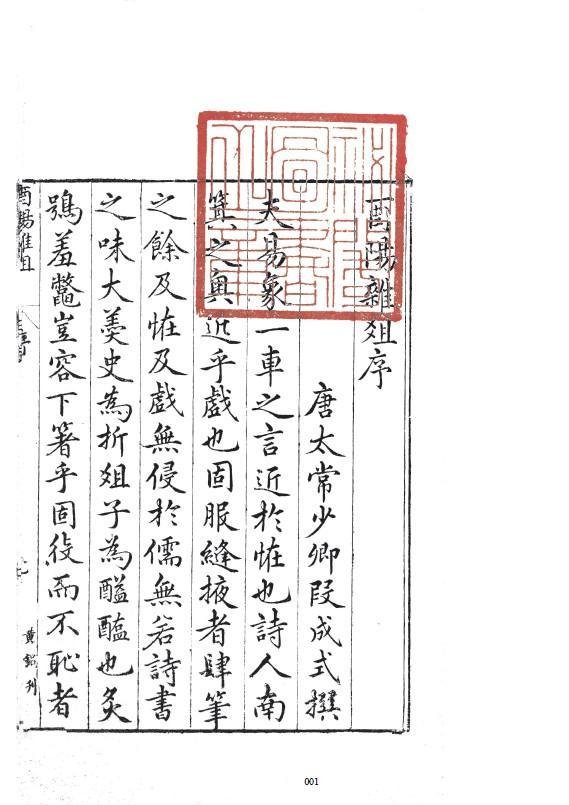 酉陽雜俎序
唐太常少卿段成式撰
夫易象一車之言近於恠也詩人南
箕之奥近乎戲也固服縫掖者肆筆
之餘及恠及戲無侵於儒無若詩書
之味大羮史為折俎子為醯醢也炙
鴞羞鼈豈容下箸乎固役而不恥者
酉陽雜俎
刊
001